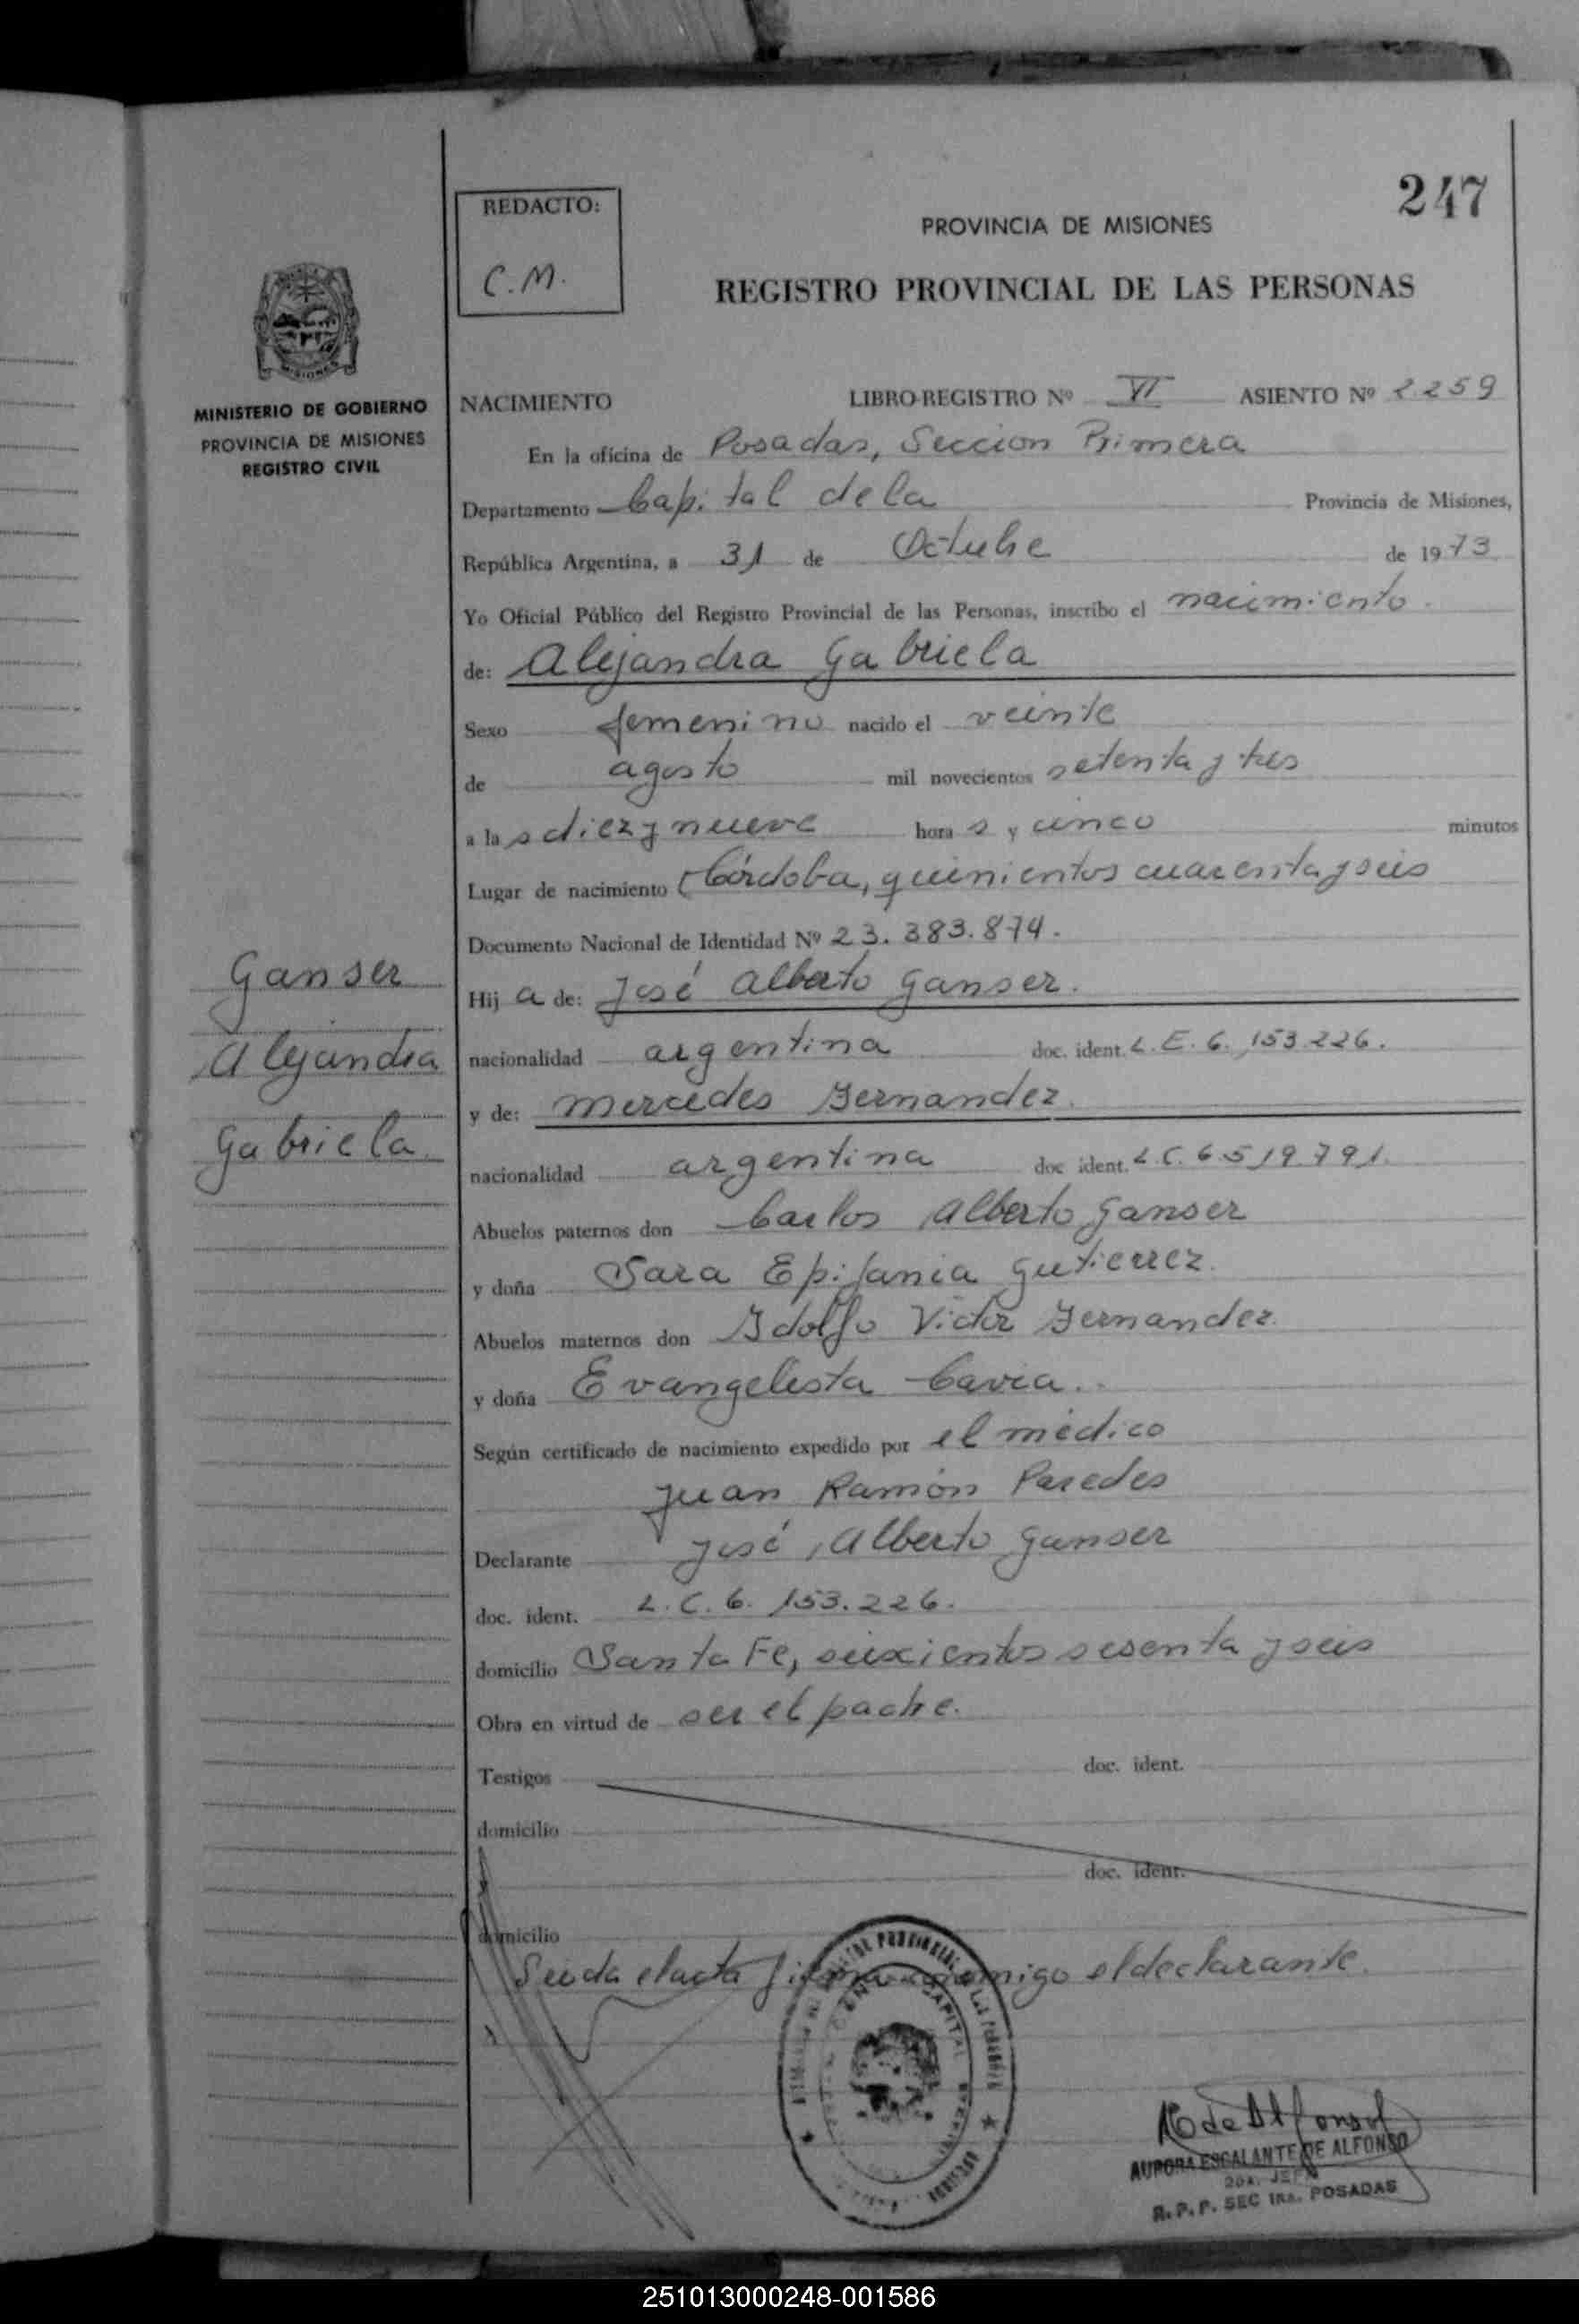 247
REDACTO:
C.M.
PROVINCIA DE MISIONES
REGISTRO PROVINCIAL DE LAS PERSONAS
MISIONES
MINISTERIO DE GOBIERNO
PROVINCIA DE MISIONES
REGISTRO CIVIL
NACIMIENTO LIBRO-REGISTRO Nº VI ASIENTO Nº 2.259
En la oficina de Posadas, Seccion Primera
Departamento Capital de la Provincia de Misiones,
República Argentina, a 31 de Octubre de 1973
Yo Oficial Público del Registro Provincial de las Personas, inscribo el nacimiento.
de: Alejandra Gabriela
Sexo femenino nacido el veinte
de agosto mil novecientos setenta y tres
a las diez y nueve horas y cinco minutos
Lugar de nacimiento Córdoba, quinientos cuarenta y seis
Documento Nacional de Identidad Nº 23.383.874.
Ganser
Alejandra
Gabriela.
Hija de: José Alberto Ganser.
nacionalidad argentina doc. ident. L.E. 6.153.226.
y de: Mercedes Fernandez.
nacionalidad argentina doc ident. L.C. 6.519.791.
Abuelos paternos don Carlos Alberto Ganser
y doña Sara Epifania Gutierrez.
Abuelos maternos don Idolfo Victor Fernandez.
y doña Evangelista Cavia.
Según certificado de nacimiento expedido por el médico
Juan Ramón Paredes
Declarante José Alberto Ganser
doc. ident. L.C. 6.153.226.
domicilio Santa Fe, seiscientos sesenta y seis
Obra en virtud de ser el padre.
Testigos doc. ident.
domicilio
doc. ident.
domicilio
Leida el acta firma conmigo el declarante.
A E de Alfonso
AURORA ESCALANTE DE ALFONSO
2DA. JEFE
R.P.P. SEC 1RA. POSADAS
251013000248-001586